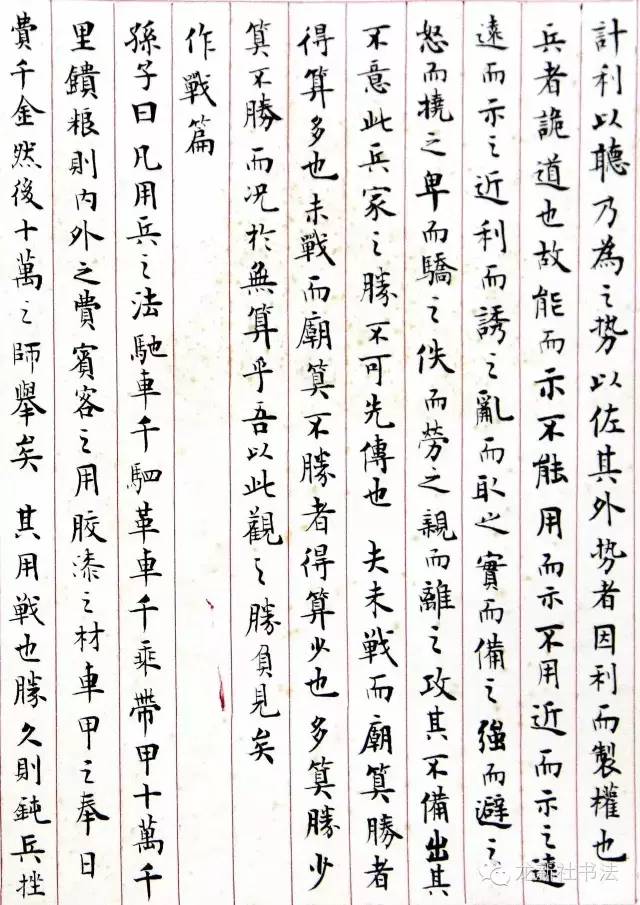 計利以聽乃為之势以佐其外势者因利而製權也
兵者詭道也故能而示不能用而示不用近而示之遠
遠而示之近利而誘之亂而取之實而備之強而避之
怒而撓之卑而驕之佚而劳之親而離之攻其不備出其
不意此兵家之勝不可先傳也 夫未戦而廟算勝者
得算多也未戰而廟算不勝者得算少也多算勝少
算不勝而况於無算乎吾以此觀之勝負見矣
作戰篇
孫子曰凡用兵之法馳車千駟革車千乘帶甲十萬千
里鐀粮則内外之費賓客之用胶漆之材車甲之奉日
費千金然後十萬之師舉矣 其用戦也勝久則鈍兵挫
龙都社书法